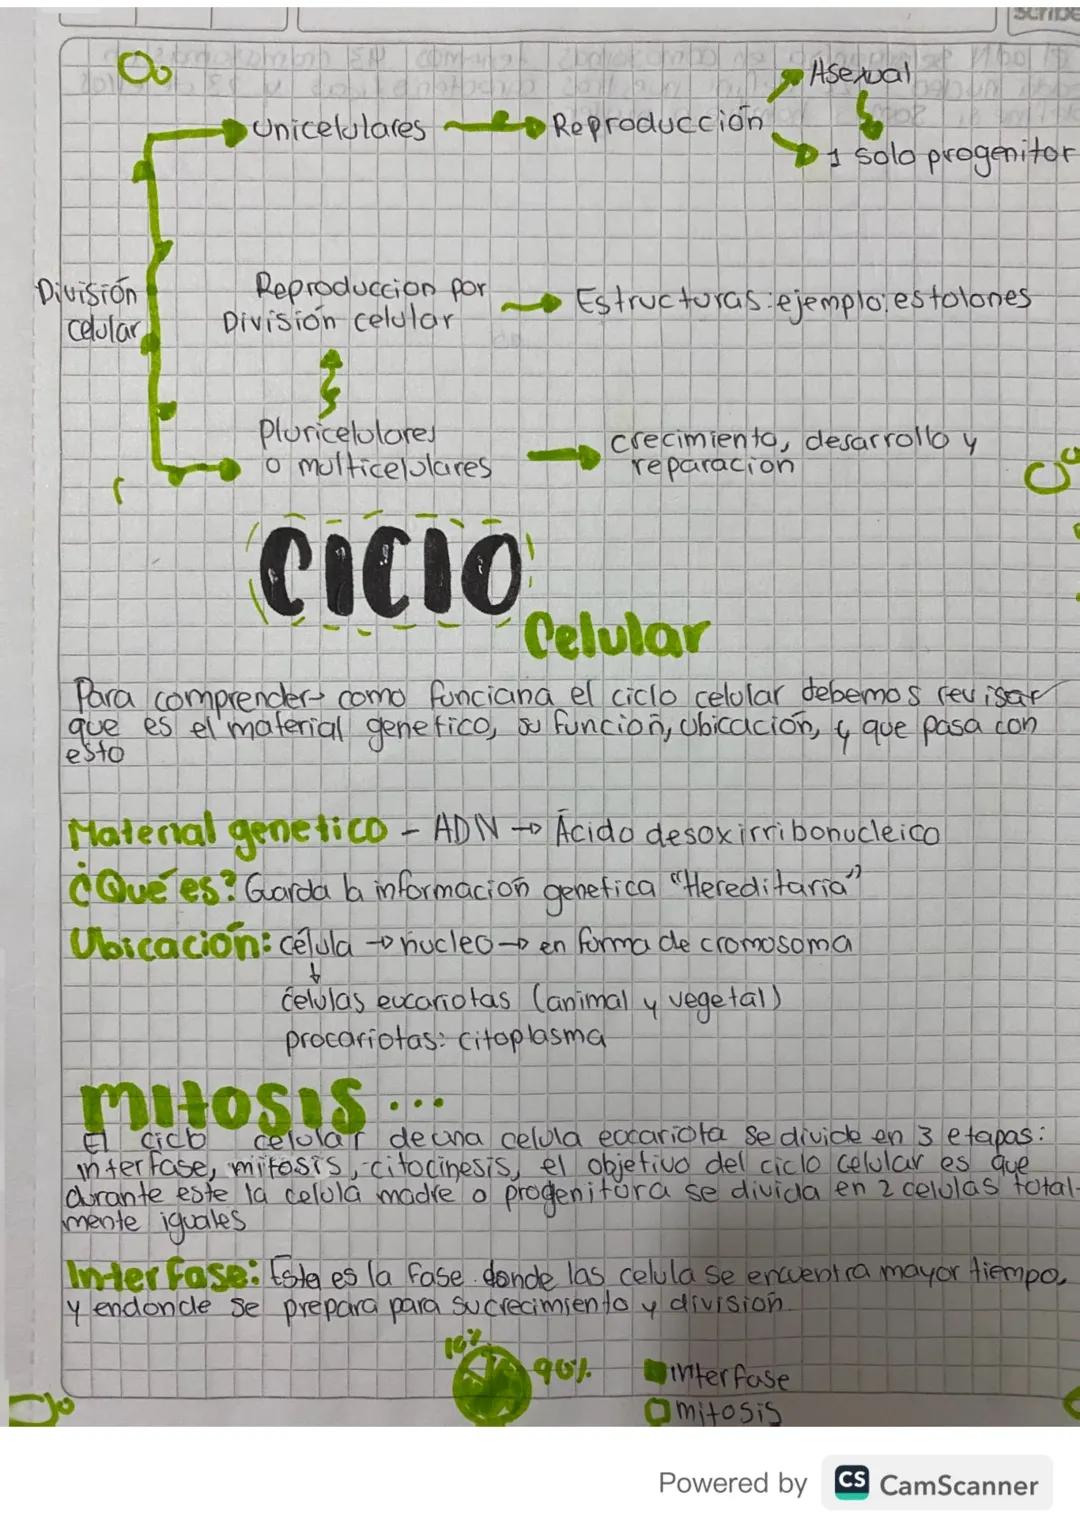 Scribe
Asexual
Unicelulares
Reproducción
1 solo progenitor
División
celular
Reproduccion por
División celular
Estructuras: ejemplo: estolones
Pluricelulares
o multicelulares
crecimiento, desarrollo y
reparacion
CICLO
Celular
Para comprender como funciona el ciclo celular debemos revisar
que es el material genetico, su función, ubicación, y que pasa con
esto
Material genetico - ADN → Ácido desoxirribonucleico
¿Que es? Guarda la información genetica "Hereditaria"
Ubicación: célula → nucleo → en forma de cromosoma
↓
células eucariotas (animal y vegetal)
procariotas: citoplasma
MItOSIS ...
El ciclo celular de una celula eocariota se divide en 3 etapas:
interfase, mitosis, citocinesis, el objetivo del ciclo celular es que
durante este la celula madre o progenitora se divida en 2 celulas total-
mente iguales
Interfase: Esta es la fase donde las celula se encuentra mayor tiempo,
y endonde se prepara para su crecimiento y división.
10% 90% interfase
mitosis
Powered by CS CamScanner